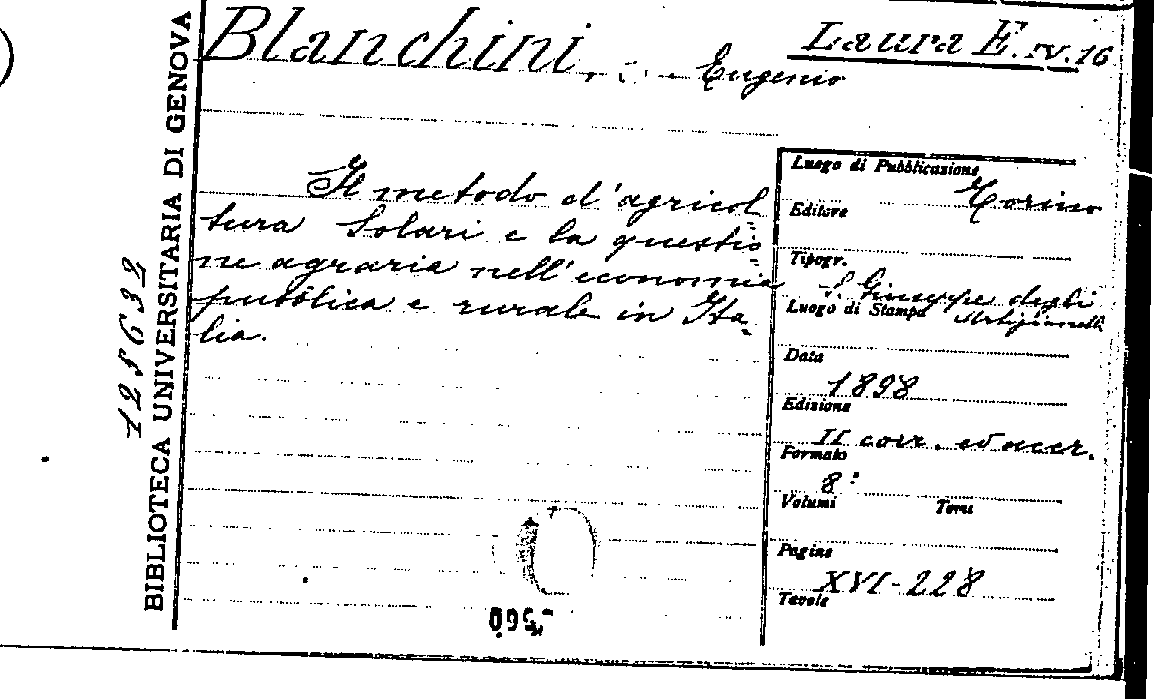 Blanchini, Eugenio
Laura E. IV. 16
BIBLIOTECA UNIVERSITARIA DI GENOVA
125632
Il metodo d'agricol
tura Solari e la questio
ne agraria nell'economia
pubblica e rurale in Ita-
lia.
Luogo di Pubblicazione
Torino
Editore
Tipogr.
S. Giuseppe degli
Artigianelli
Luogo di Stampa
Data
1898
Edizione
II corr. ed accr.
Formato
8º
Volumi Tomi
Pagine
XVI-228
Tavole